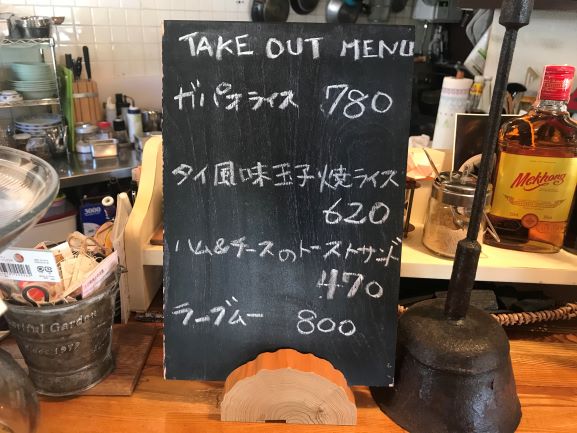 TAKE OUT MENU
ガパオライス 780
タイ風味玉子焼ライス
620
ハム&チーズのトーストサンド
470
ラープムー 800
Mekhong
3000
tiful Garden
since 1972